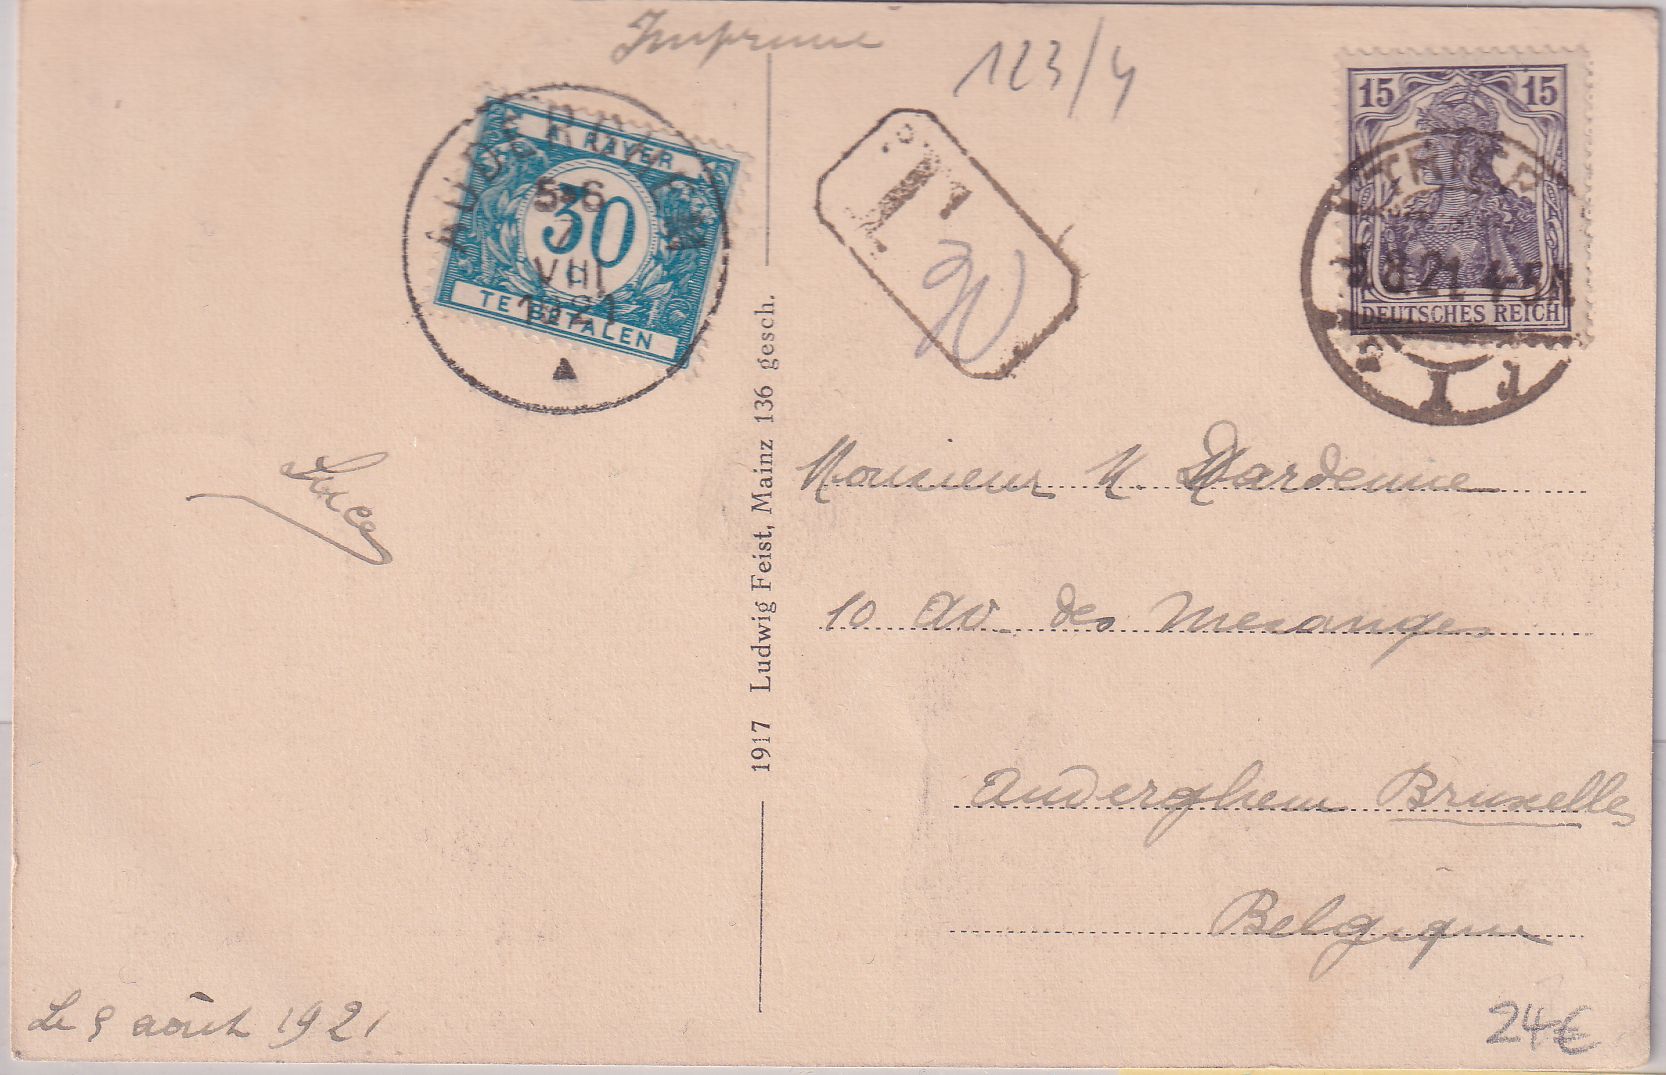 Imprimé
123/4
15 15
DEUTSCHES REICH
TRIER
5.8.21. 4-5N
1
A PAYER
30
TE BETALEN
AUDERGHEM
5-6
7
VIII
1921
T
1917 Ludwig Feist, Mainz 136 gesch.
Monsieur M. Dardenne
10 Av. des Mesanges
Auderghem Bruxelles
Belgique
Le 5 août 1921
24€